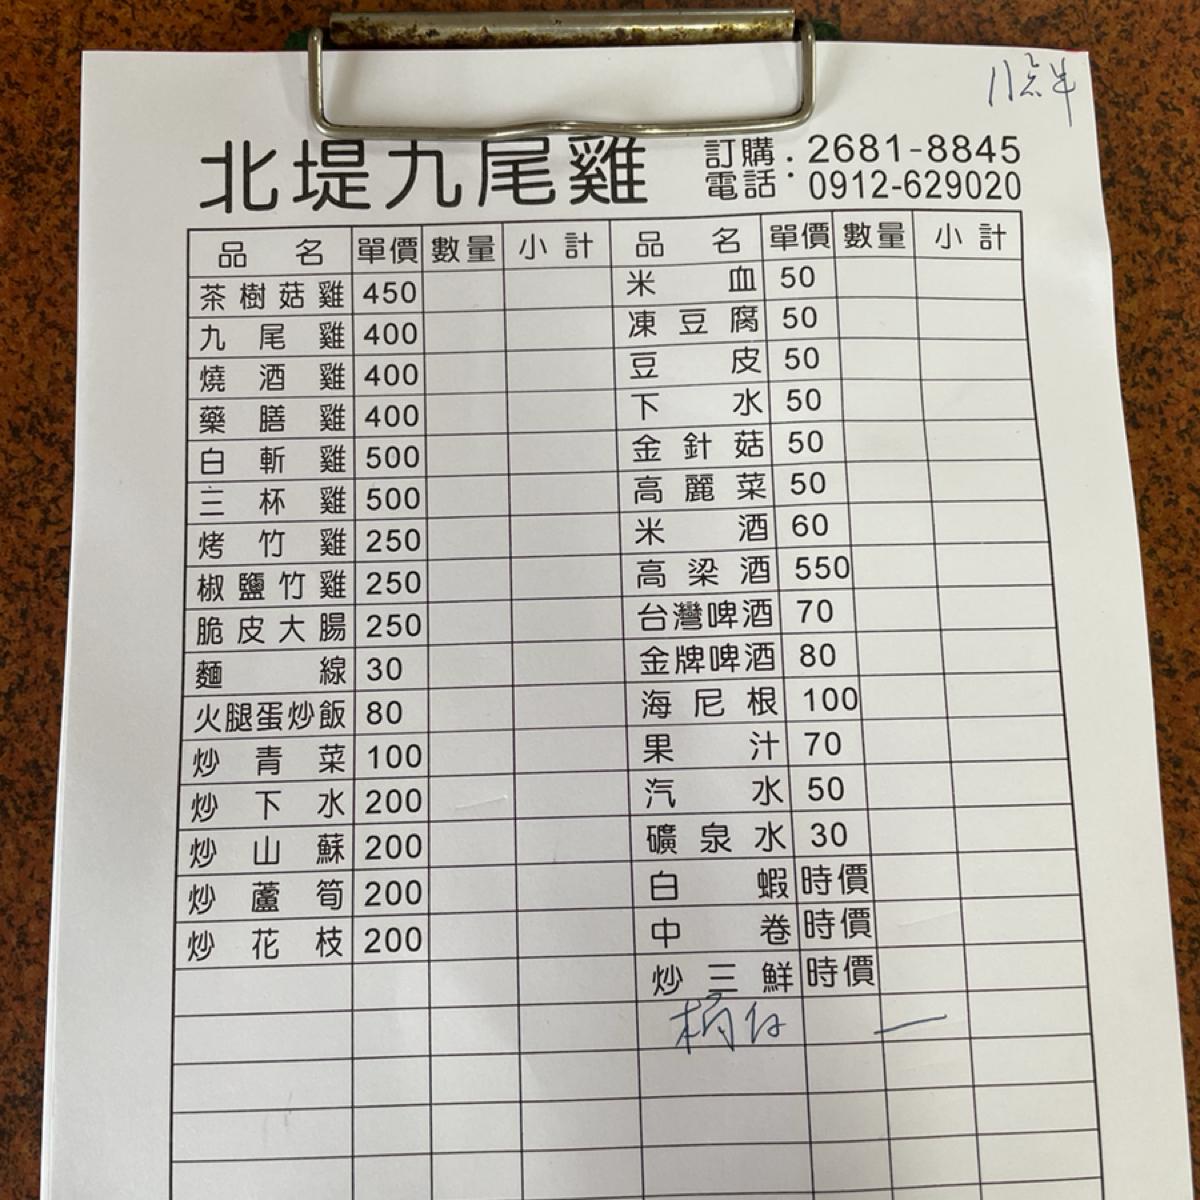 北堤九尾雞
訂購電話：2681-8845
0912-629020
品名 單價 數量 小計 品名 單價 數量 小計
茶樹菇雞 450 米血 50
九尾雞 400 凍豆腐 50
燒酒雞 400 豆皮 50
藥膳雞 400 下水 50
白斬雞 500 金針菇 50
三杯雞 500 高麗菜 50
烤竹雞 250 米酒 60
椒鹽竹雞 250 高梁酒 550
脆皮大腸 250 台灣啤酒 70
麵線 30 金牌啤酒 80
火腿蛋炒飯 80 海尼根 100
炒青菜 100 果汁 70
炒下水 200 汽水 50
炒山蘇 200 礦泉水 30
炒蘆筍 200 白蝦 時價
炒花枝 200 中卷 時價
炒三鮮 時價